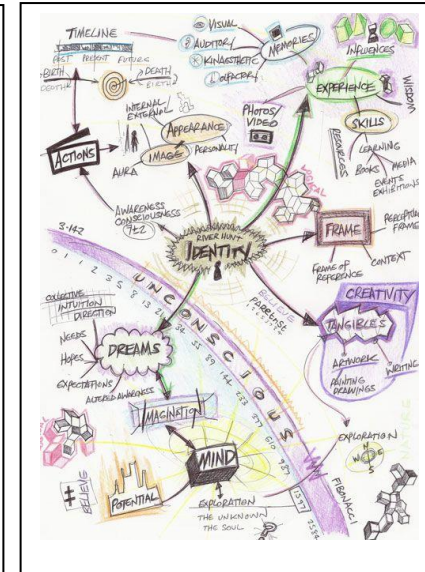 TIMELINE
PAST PRESENT FUTURE
BIRTH
DEATH
DEATH
BIRTH
VISUAL
AUDITORY
KINAESTHETIC
OLFACTORY
MEMORIES
INFLUENCES
EXPERIENCE
WISDOM
SKILLS
RESOURCES
LEARNING
BOOKS MEDIA
EVENTS
EXHIBITIONS
PHOTOS/
VIDEO
INTERNAL/
EXTERNAL
APPEARANCE
IMAGE
PERSONALITY
AURA
ACTIONS
AWARENESS
CONSCIOUSNESS
7±2
RIVER HUNT
IDENTITY
FRAME
PERCEPTUAL
FRAME
FRAME OF
REFERENCE
CONTEXT
BELIEVE
CREATIVITY
TANGIBLES
ARTWORK
PAINTING
DRAWINGS
WRITING
3.142
0 1 1 2 3 5 8 13 21 34 55 89 144 233 377 610 987 1597 2584
UNCONSCIOUS
FIBONACCI
COLLECTIVE
INTUITION
DIRECTION
NEEDS
HOPES
EXPECTATIONS
DREAMS
ALTERED AWARENESS
IMAGINATION
MIND
POTENTIAL
BELIEVE
EXPLORATION
THE UNKNOWN
THE SOUL
?
EXPLORATION
N
W E
S